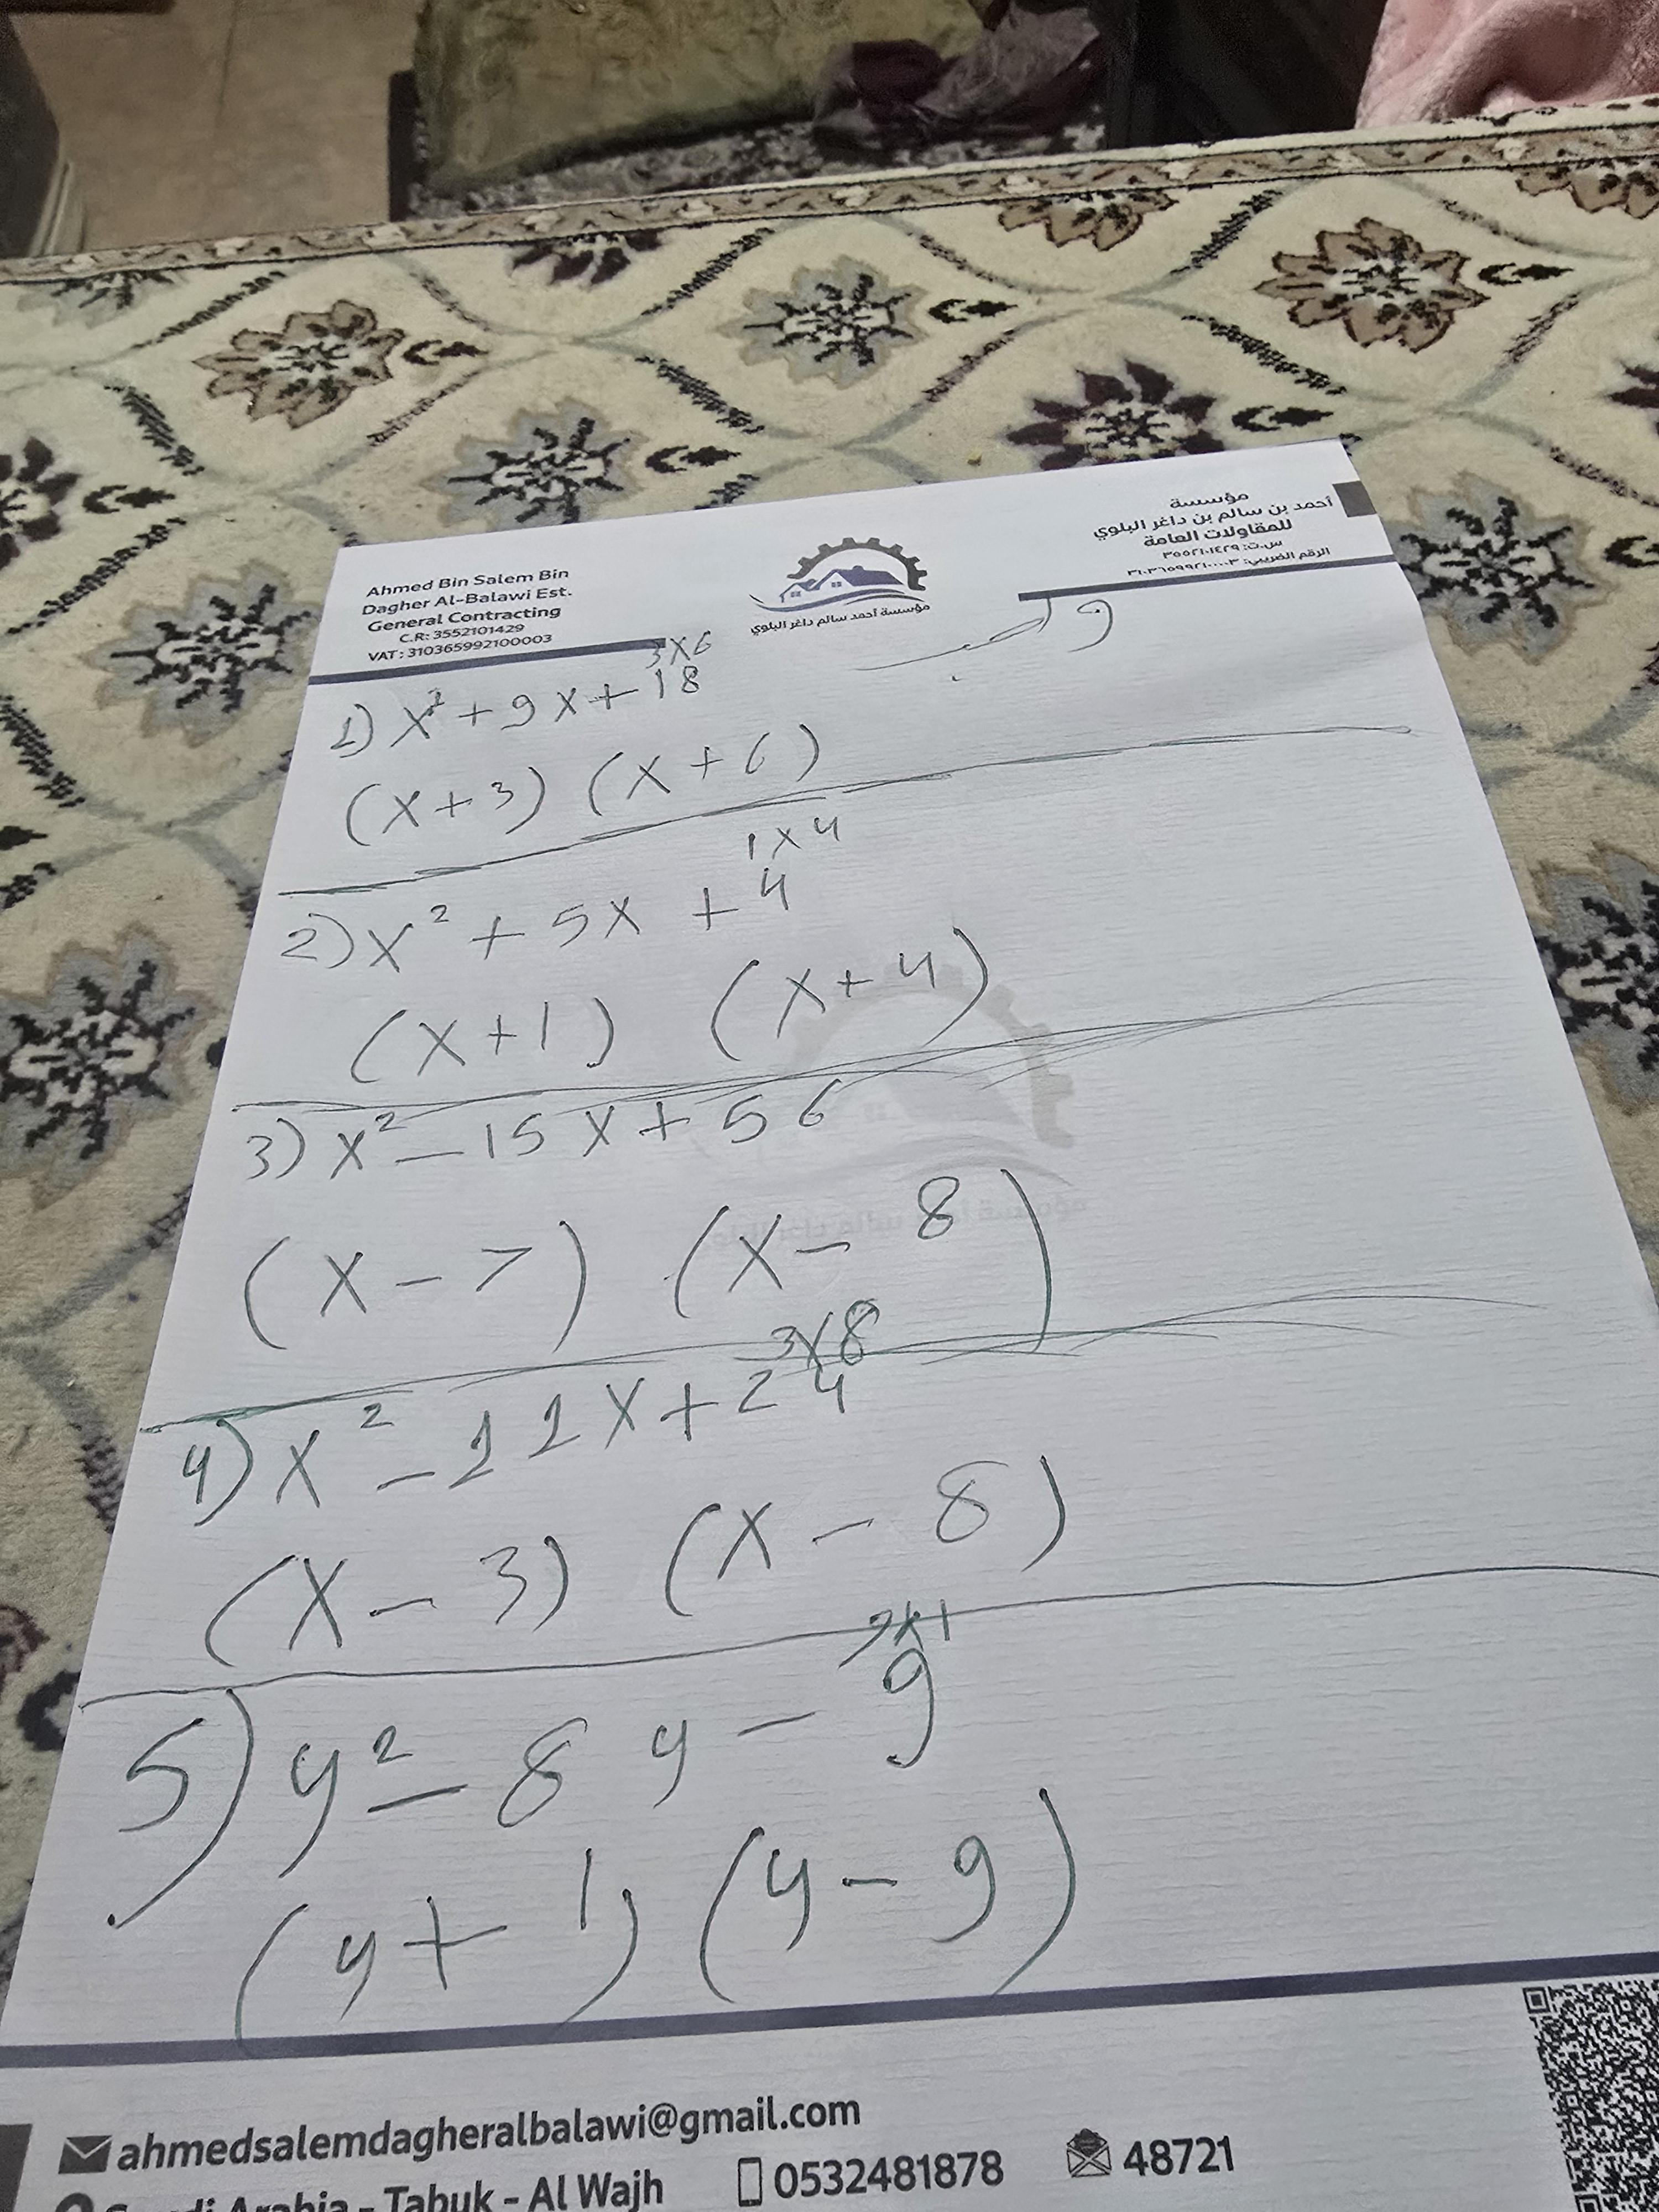 Ahmed Bin Salem Bin
Dagher Al-Balawi Est.
General Contracting
C.R: 3552101429
VAT: 310365992100003
مؤسسة أحمد سالم داغر البلوي
مؤسسة
أحمد بن سالم بن داغر البلوي
للمقاولات العامة
س.ت: ٣٥٥٢١٠١٤٢٩
الرقم الضريبي: ٣١٠٣٦٥٩٩٢١٠٠٠٠٣
واجب
3x6
1) x² + 9x + 18
(x + 3) (x + 6)
1 x 4
2) x² + 5x + 4
(x + 1) (x + 4)
3) x² - 15x + 56
(x - 7) (x - 8)
3x8
4) x² - 11x + 24
(x - 3) (x - 8)
9x1
5) y² - 8y - 9
(y + 1) (y - 9)
ahmedsalemdagheralbalawi@gmail.com
Saudi Arabia - Tabuk - Al Wajh
0532481878
48721